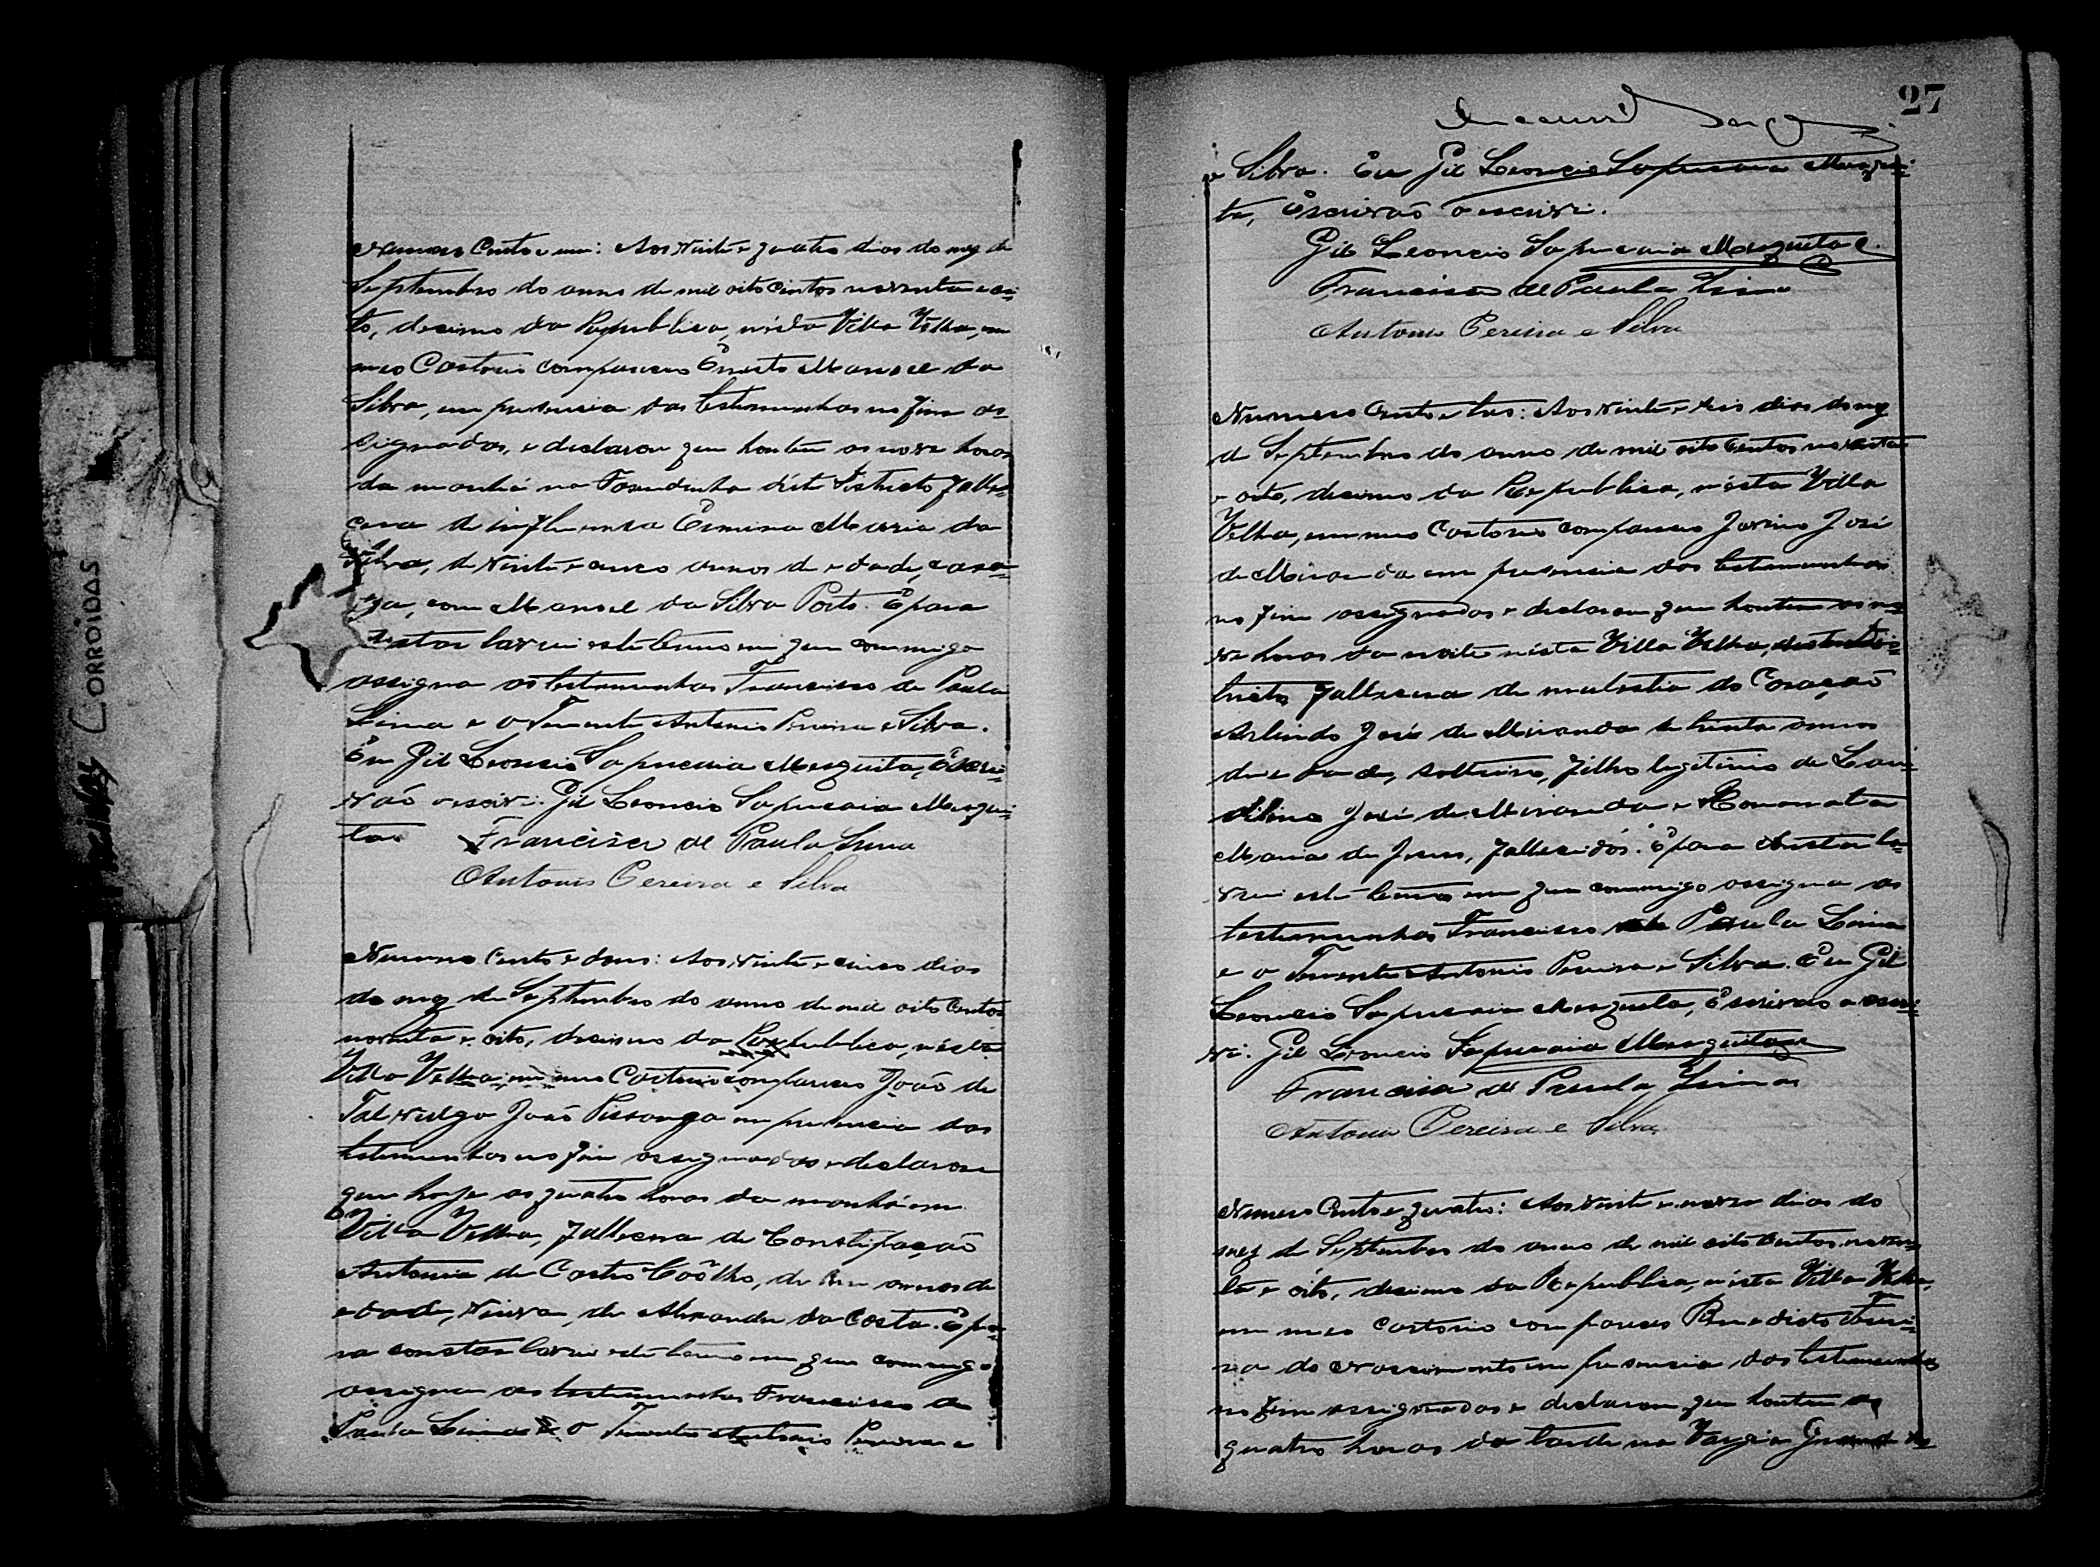 Numero Cento e um: Aos vinte e quatro dias do mez de
Septembro do anno de mil oito centos noventa e oi-
to, decimo da Republica, nésta Villa Velha, em
meo Cartorio compareceo Ernesto Manoel da
Silva, em presencia das testemunhas no fim as-
signadas, e declarou que hontem as nove horas
da manhã na Fasendinha déste Districto falle-
cera de influensa Ermina Maria da
Silva, de vinte e cinco annos de edade, casa-
da, com Manoel da Silva Porto. E para
constar lavrei este termo em que commigo
assigna as testemunhas Francisco de Paula
Lima e o Tenente Antonio Pereira e Silva.
Eu Gil Leoncio Sapucaia Mesquita, Escri-
vão o escrivi. Gil Leoncio Sapucaia Mesqui-
ta.
Francisco de Paula Lima
Antonio Pereira e Silva
Numero Cento e dous: Aos vinte e cinco dias
do mez de Septembro do anno de mil oito Centos
noventa e oito, decimo da Republica, nésta
Villa Velha, em meo Cartorio compareceo João de
Tal vulgo João Pissanga em presencia das
testemunhas no fim assignadas e declarou
que hoje as quatro horas da manhã em
Villa Velha, fallecera de Constipação
Antonia de Castro Coêlho, de annos de
edade, viuva, de Alexandre da Costa. E pa-
ra constar lavrei este termo em que commigo
assigna as testemunhas Francisco de
Paula Lima e o Tenente Antonio Pereira e
27
e Silva. Eu Gil Leoncio Sapucaia Mesqui-
ta, Escrivão o escrivi.
Gil Leoncio Sapucaia Mesquita
Francisco de Paula Lima
Antonio Pereira e Silva
Numero Cento e tres: Aos vinte e seis dias do mez
de Septembro do anno de mil oito centos noventa
e oito, decimo da Republica, nésta Villa
Velha, em meo Cartorio compareceo Jovino José
de Miranda em presencia das testemunhas
no fim assignadas e declarou que hontem as no-
ve horas da noite nésta Villa Velha,
fallecera de molestia do Coração
Arlindo José de Miranda de trinta annos
de edade, solteiro, filho legitimo de
José de Miranda e
Maria de Jesus, fallecidos. E para constar la-
vrei este termo em que commigo assigna as
testemunhas Francisco de Paula Lima
e o Tenente Antonio Pereira e Silva. Eu Gil
Leoncio Sapucaia Mesquita, Escrivão o escri-
vi. Gil Leoncio Sapucaia Mesquita
Francisco de Paula Lima
Antonio Pereira e Silva
Numero Cento e quatro: Aos vinte e nove dias do
mez de Septembro do anno de mil oito centos noven-
ta e oito, decimo da Republica, nésta Villa Velha,
em meo Cartorio compareceo Benedicto
do Nascimento em presencia das testemunhas
no fim assignadas e declarou que hontem as
quatro horas da tarde na Vargia Grande
CORROIDAS